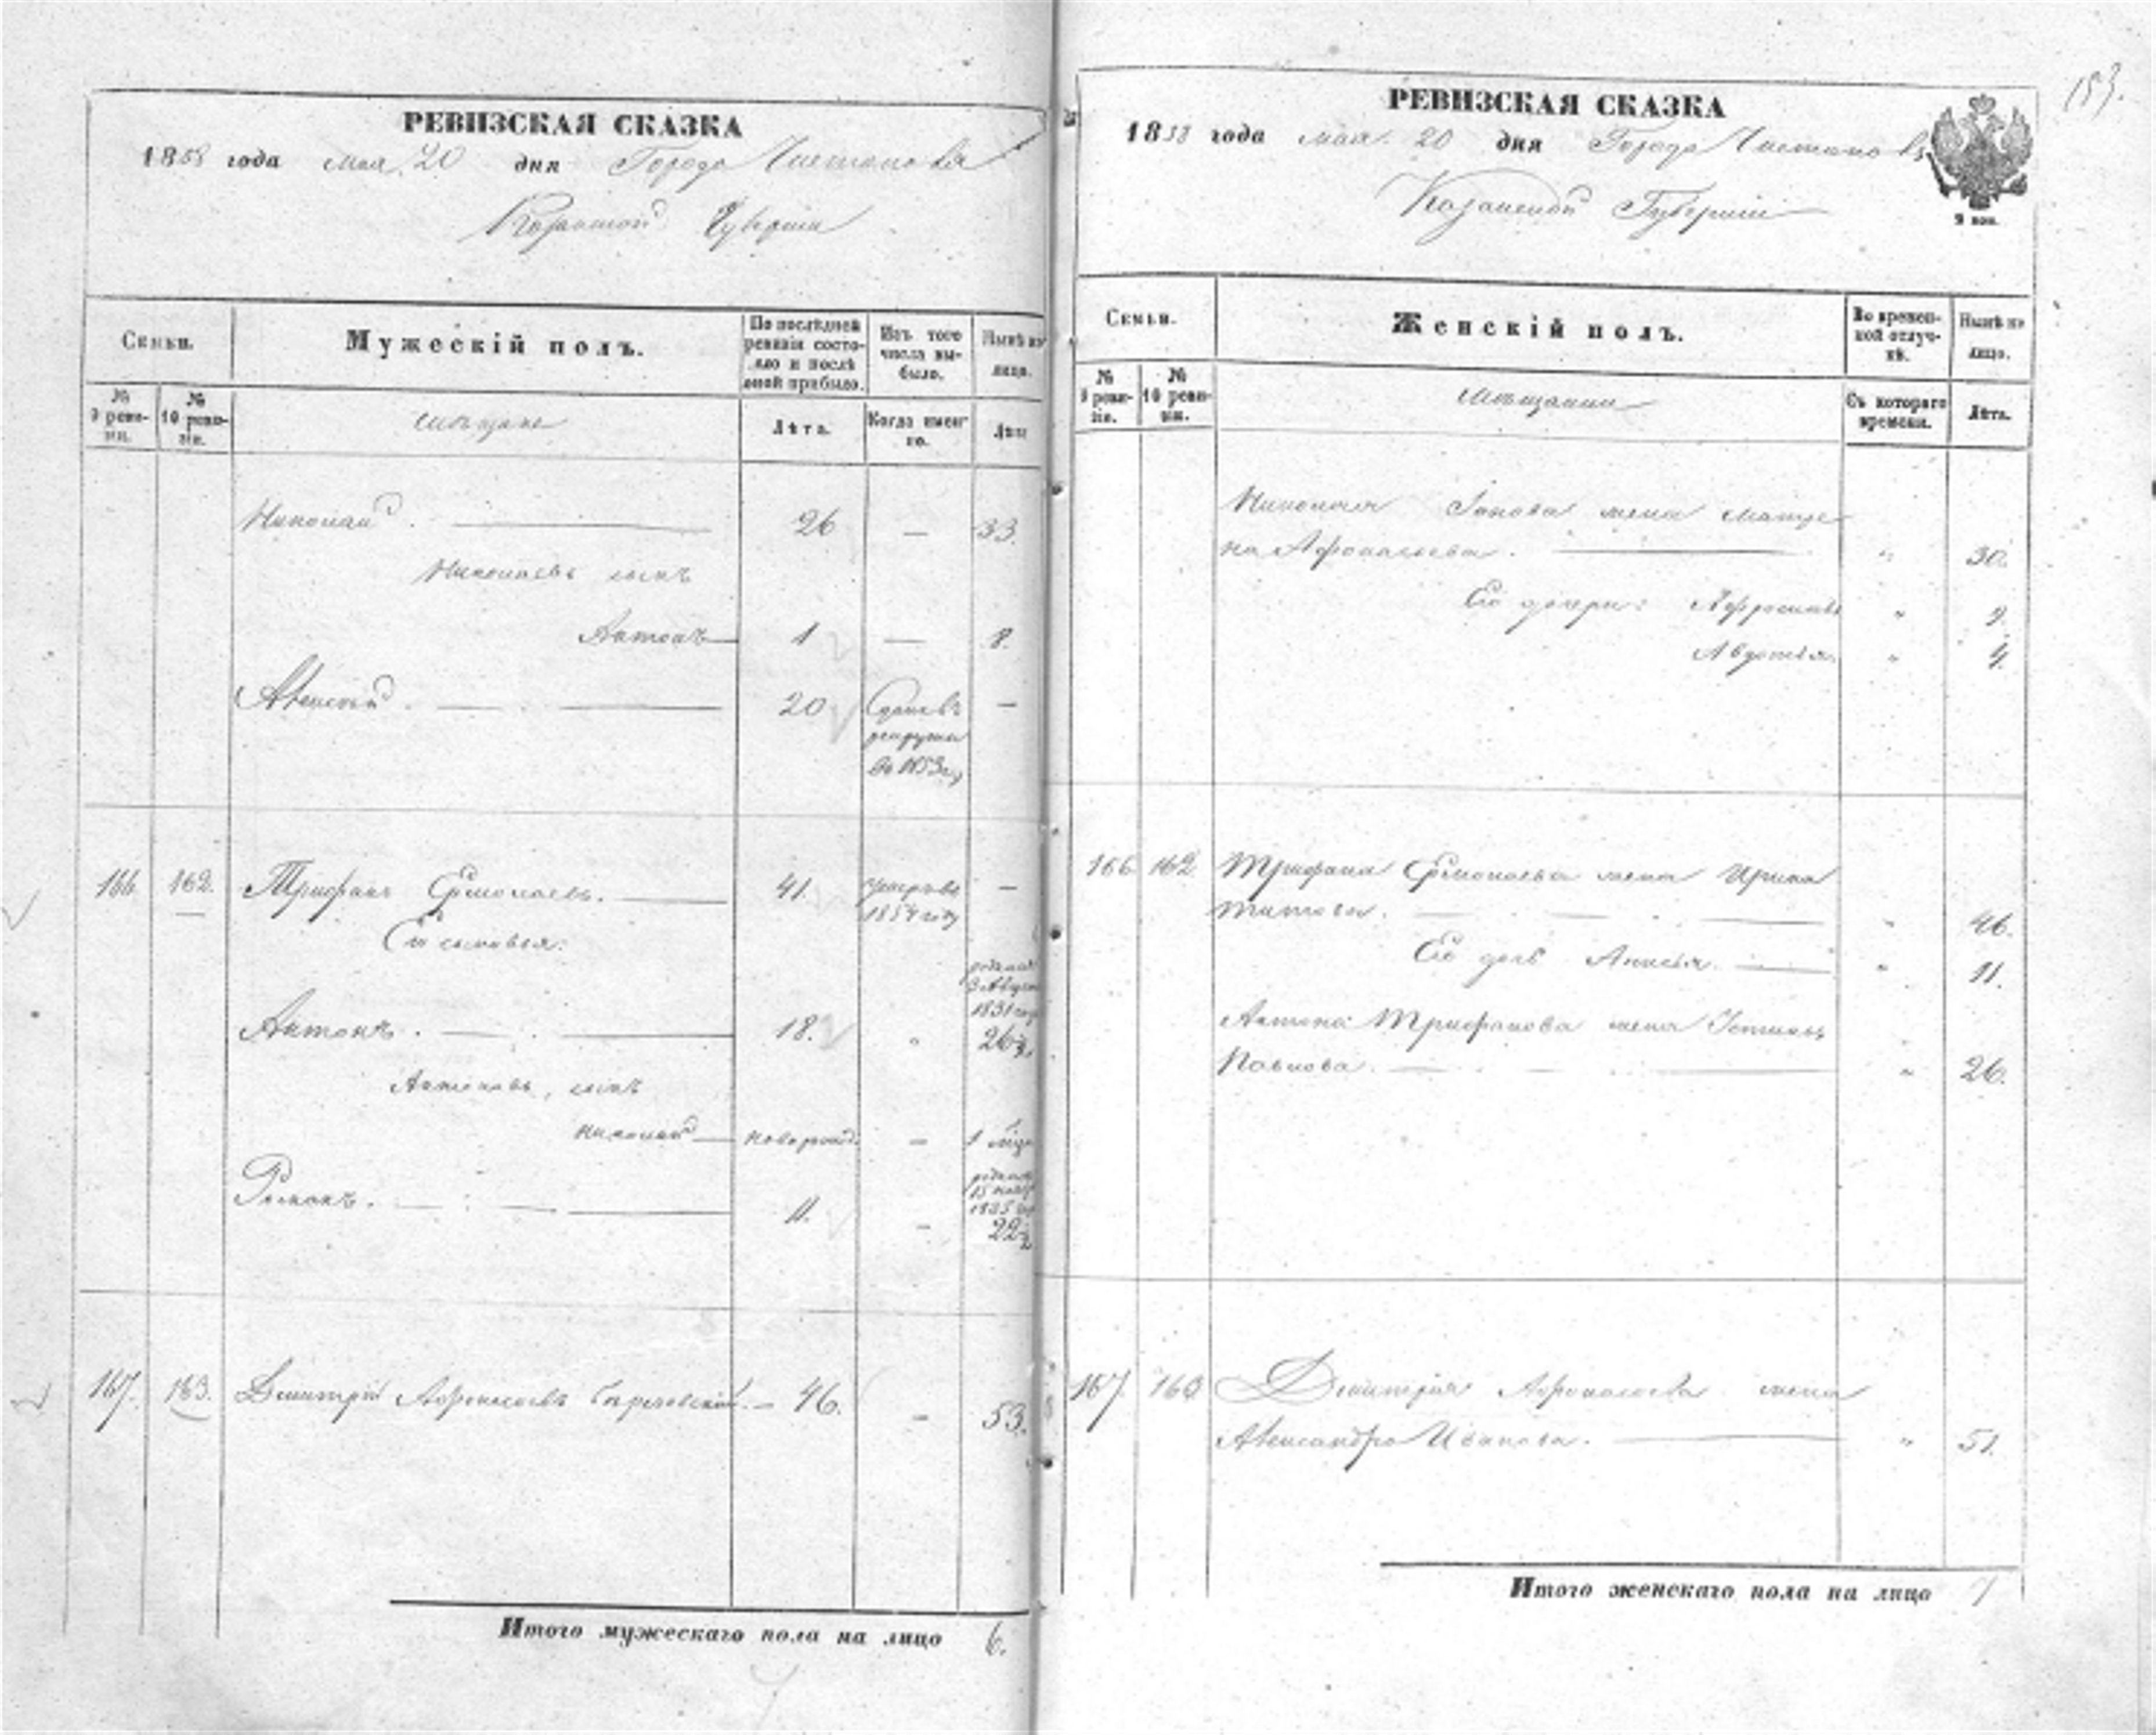 153.
РЕВИЗСКАЯ СКАЗКА
1858 года мая 20 дня Города Чистополя
Казанской Губернiи
Семьи.
Мужескiй полъ.
По послѣдней ревизiи состояло и послѣ оной прибыло.
Изъ того числа выбыло.
Нынѣ на лицо.
№ 9 ревизiи.
№ 10 ревизiи.
мѣщане
Лѣта.
Когда именно.
Лѣта
Николай. 26 — 33.
Николаевъ сынъ
Антонъ 1 — 8.
Алексѣй. 20 —
рекруты
въ 1853 г.
166 162. Трифонъ Ермолаевъ. 41. умеръ въ —
1854 году
Его сыновья:
3 Августа
1831 года
Антонъ. 18. " 26¾.
Антоновъ, сынъ
Николай новорожд. — 1
Романъ. 11. —
1835
22½
167. 163. Дмитрiй Афонасьевъ — 46. — 53.
Итого мужескаго пола на лицо 6.
РЕВИЗСКАЯ СКАЗКА
1858 года мая 20 дня Города Чистополя
Казанской Губернiи
Семьи.
Женскiй полъ.
Во временной отлучкѣ.
Нынѣ на лицо.
№ 9 ревизiи.
№ 10 ревизiи.
мѣщанки
Съ котораго времени.
Лѣта.
Николая жена Матре-
на Афонасьева. " 30.
Его дочери: " 9.
Авдотья. " 4.
166 162 Трифона Ермолаева жена Ирина
Титова. " 46.
Его дочь Анисья. " 11.
Антона Трифонова жена Устинья
Павлова. " 26.
167. 163 Дмитрiя Афонасьева жена
Александра Иванова. " 51.
Итого женскаго пола на лицо 7